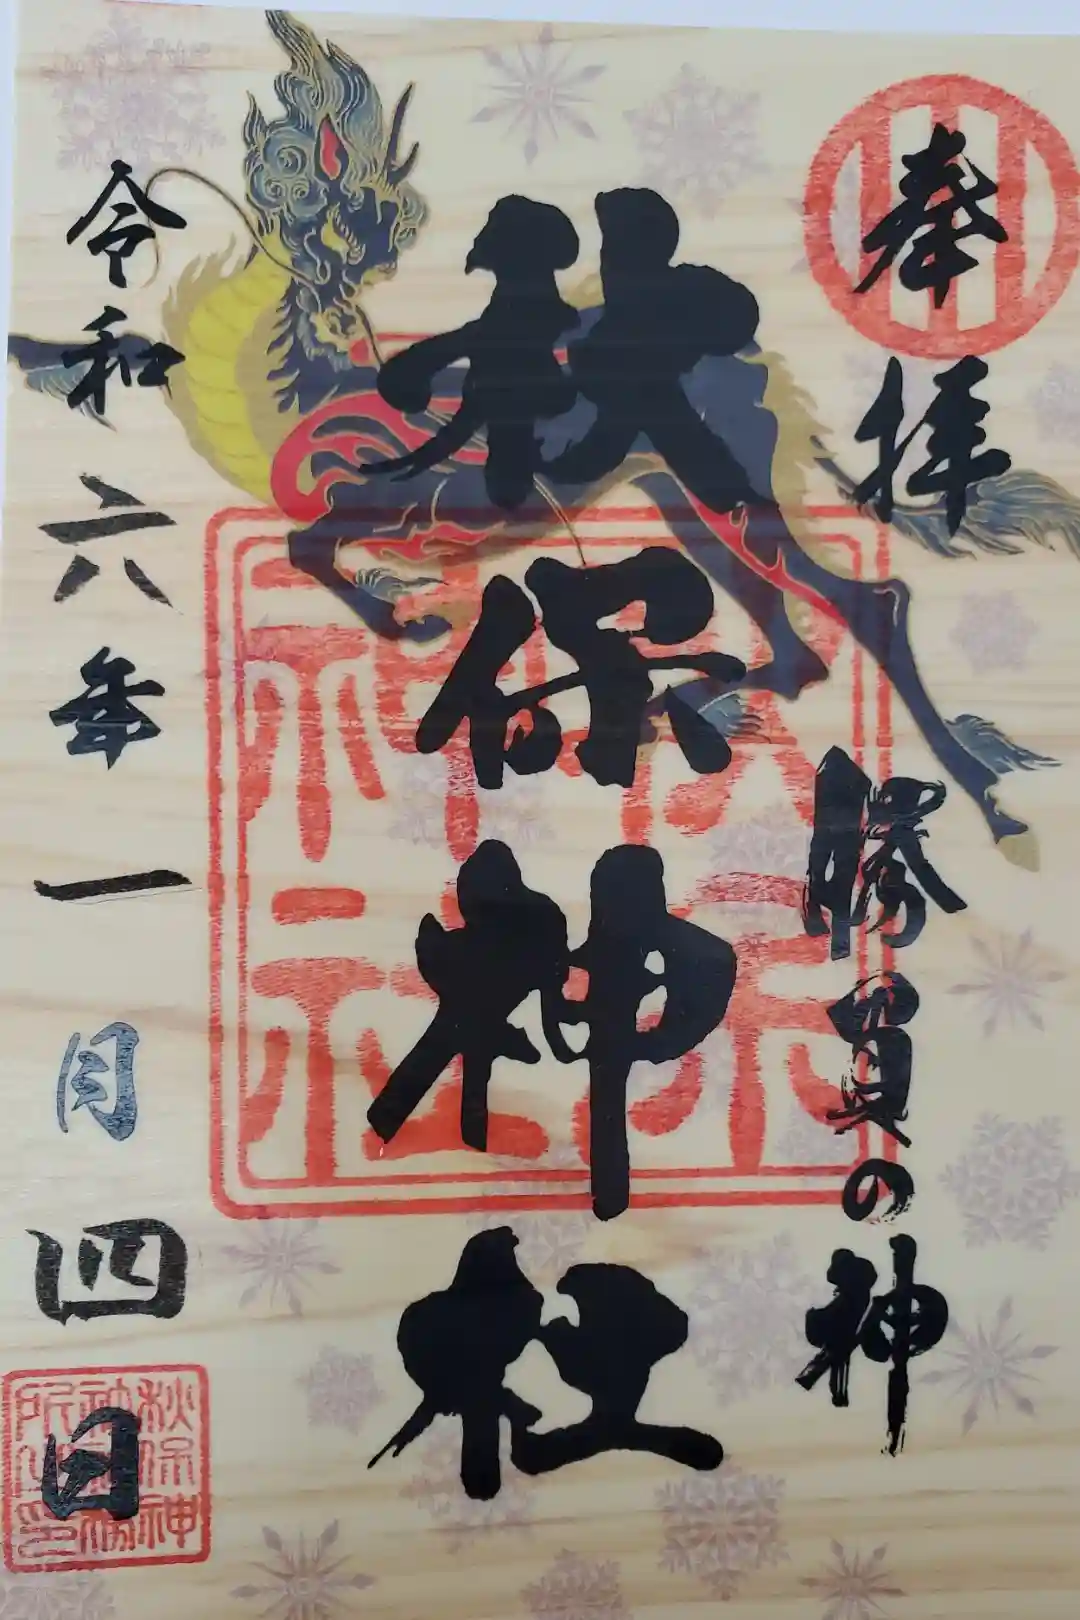 奉拝
勝負の神
秋保神社
令和六年一月四日
秋保神社
秋保神